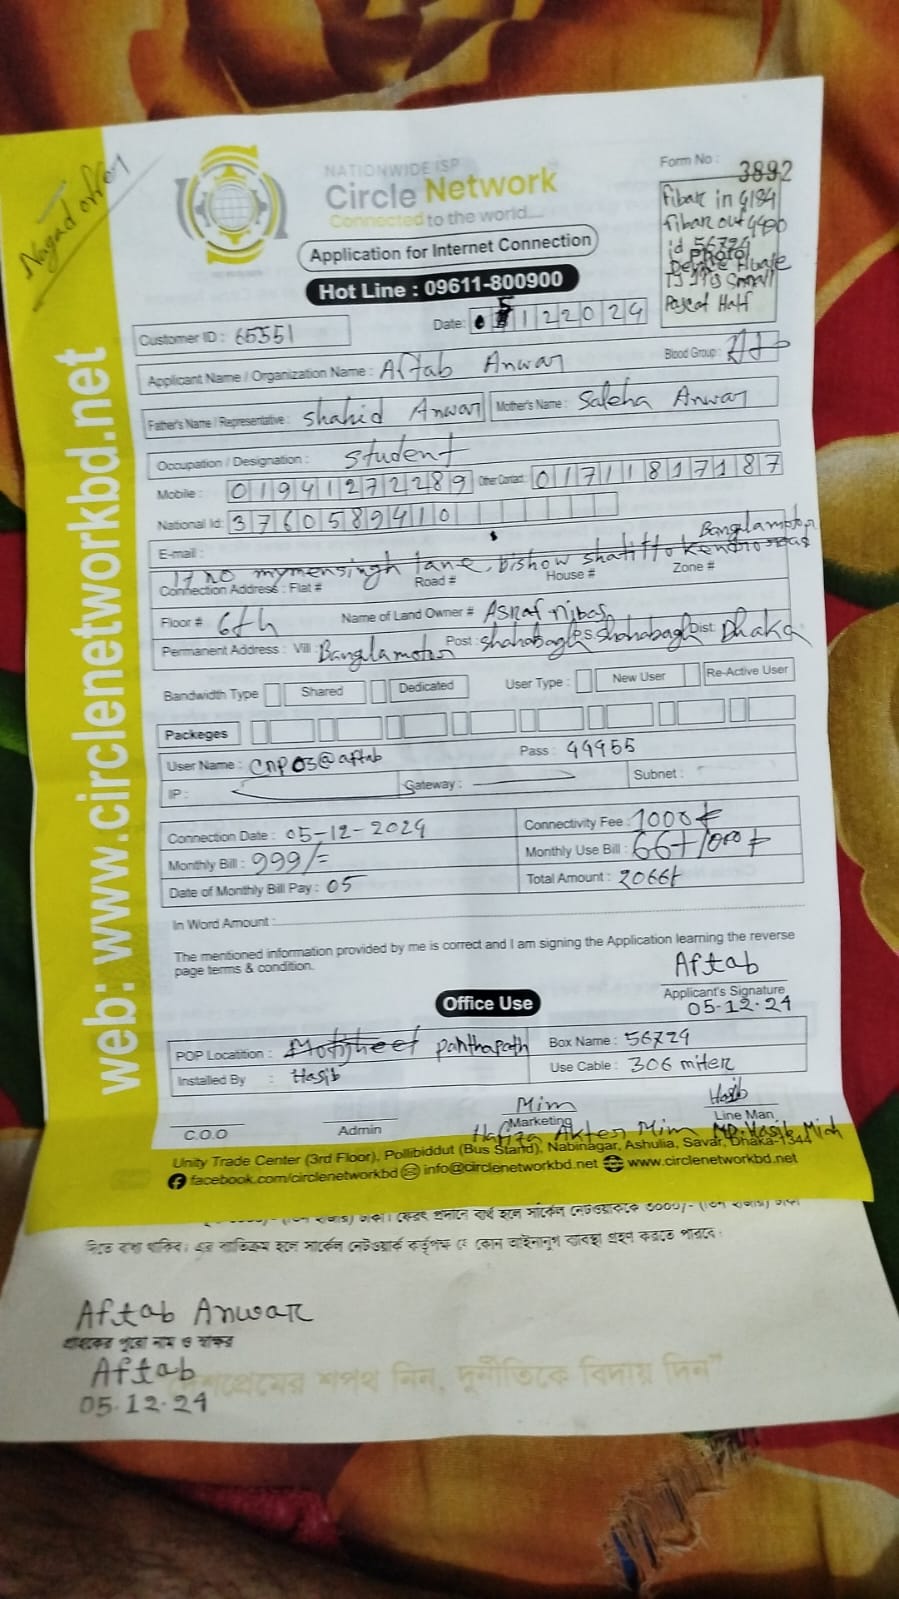 Nagad offer
NATIONWIDE ISP
Circle Network
Connected to the world....
Application for Internet Connection
Hot Line : 09611-800900
Form No : 3892
Fibar in 4184
fibar out 4490
id 56724
Photo
Small
Pascat Half
Customer ID : 65551
Date: 05122024
Applicant Name / Organization Name : Aftab Anwar
Blood Group :
Father's Name / Representative : Shahid Anwar
Mother's Name : Saleha Anwar
Occupation / Designation : Student
Mobile : 01941272289
Other Contact: 01711817187
National Id: 3760589410
E-mail :
Banglamotor
17 no mymensingh lane, bishow shahitto kendro
Connection Address : Flat # Road # House # Zone #
Floor # 6th Name of Land Owner # Asraf nibas
Permanent Address : Vill : Banglamotor Post : Shahabagh P.S: Shahabagh Dist: Dhaka
Bandwidth Type Shared Dedicated User Type : New User Re-Active User
Packeges
User Name : cnp03@aftab Pass : 44955
IP : Gateway : Subnet :
Connection Date : 05-12-2024 Connectivity Fee : 1000 t
Monthly Bill : 999/= Monthly Use Bill : 66+1000 t
Date of Monthly Bill Pay : 05 Total Amount : 2066t
In Word Amount :
The mentioned information provided by me is correct and I am signing the Application learning the reverse
page terms & condition.
Aftab
Applicant's Signature
05-12-24
Office Use
POP Locatition : Motijheel panthapath Box Name : 56724
Installed By : Hasib Use Cable : 306 miter
Mim Hasib
C.O.O Admin Marketing Line Man
Hafiza Akter Mim MD. Hasib Miah
Unity Trade Center (3rd Floor), Pollibiddut (Bus Stand), Nabinagar, Ashulia, Savar, Dhaka-1344
facebook.com/circlenetworkbd info@circlenetworkbd.net www.circlenetworkbd.net
web: www.circlenetworkbd.net
দিতে বাধ্য থাকিব। এর ব্যতিক্রম হলে সার্কেল নেটওয়ার্ক কর্তৃপক্ষ যে কোন আইনানুগ ব্যবস্থা গ্রহণ করতে পারবে।
Aftab Anwar
গ্রাহকের পুরো নাম ও স্বাক্ষর
Aftab
05-12-24
দেশপ্রেমের শপথ নিন, দুর্নীতিকে বিদায় দিন”